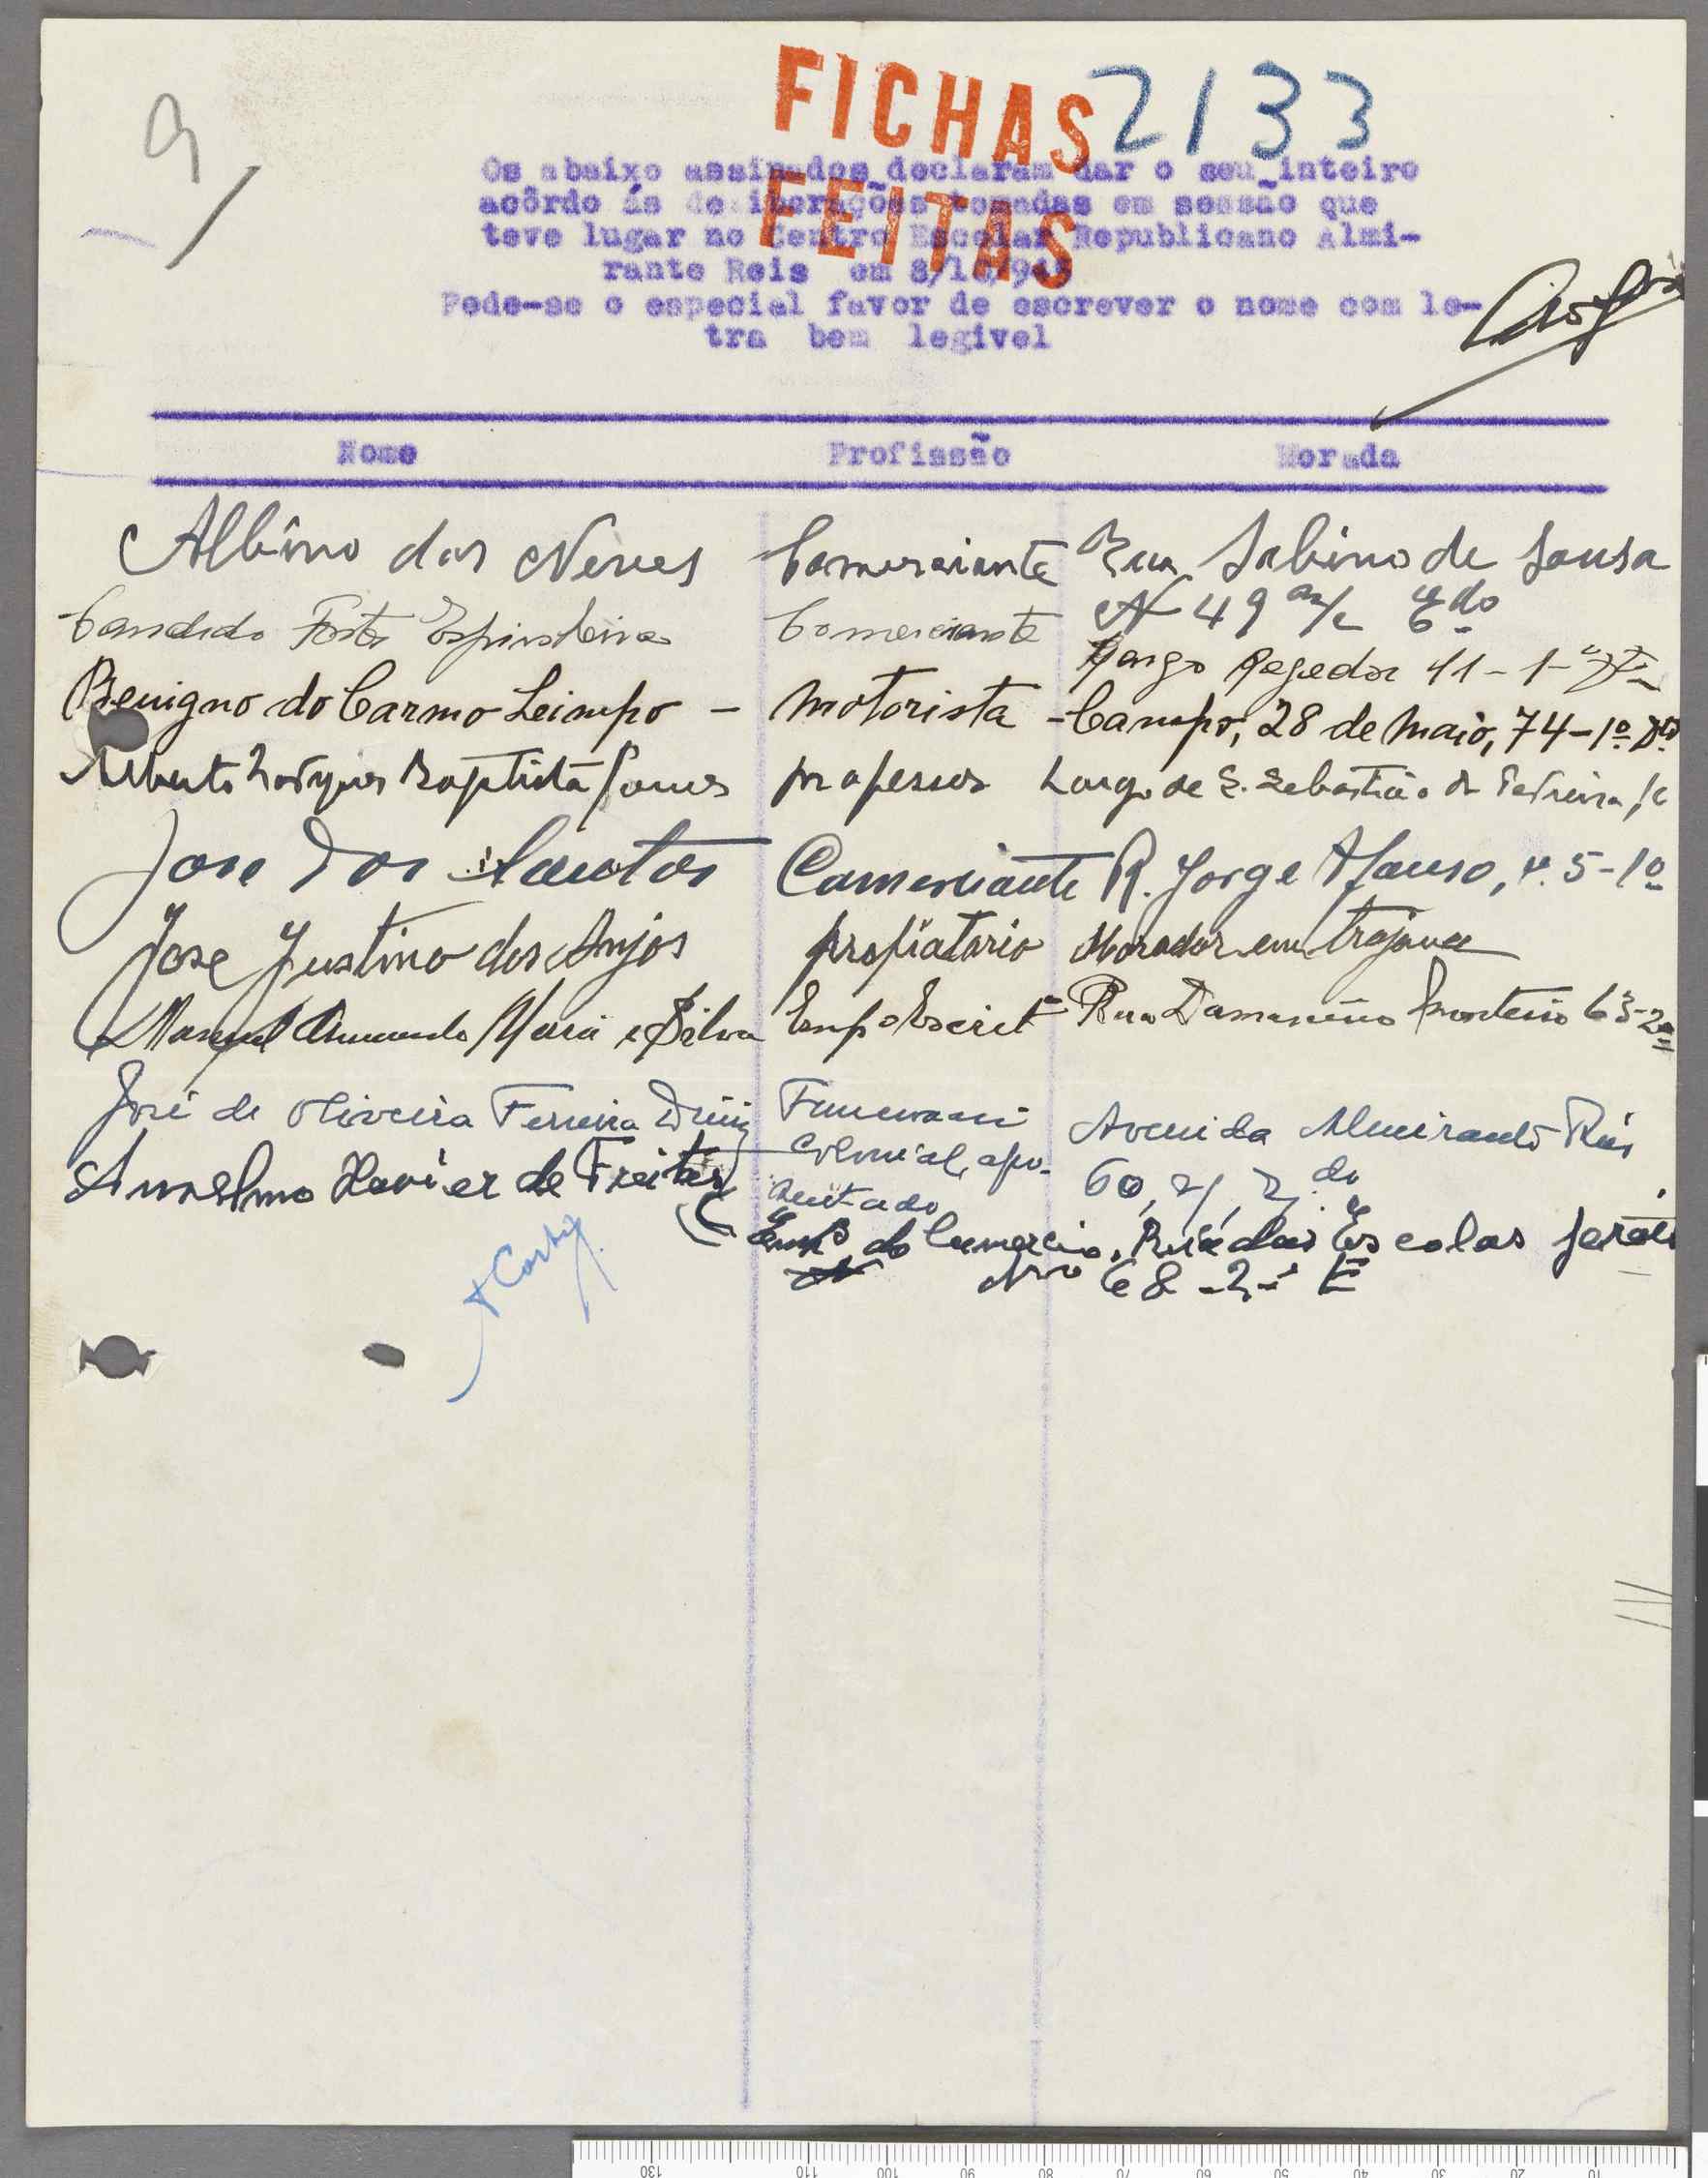 9
FICHAS 2133
FEITAS
Os abaixo assinados declaram dar o seu inteiro
acôrdo ás deliberações tomadas em sessão que
teve lugar no Centro Escolar Republicano Almi-
rante Reis em 8/10/945
Pede-se o especial favor de escrever o nome com le-
tra bem legivel
Nome Profissão Morada
Albino das Neves Comerciante Rua Sabino de Sousa
N 49 r/c Edo
Candido Comerciante Largo Regedor 11-1-
Benigno do Carmo Leimpo - Motorista - Campo, 28 de Maio, 74-1º Dto
Alberto Baptista professor Largo de S. Sebastião da Pedreira,
Jose dos Santos Comerciante R. Jorge Afonso, n. 5-1º
Jose Justino dos Anjos propiatario Morador em
Manuel Armando Maria e Silva Empº Escritº Rua Damasceno Monteiro 63-2º
José de Oliveira Ferreira Diniz Funcionario
colonial, apo-
sentado
Avenida Almirante Reis
60, r/c, do
Anselmo Xavier de Freitas Empº do Comercio. Rua das Escolas Gerais
Nro 68-2º E